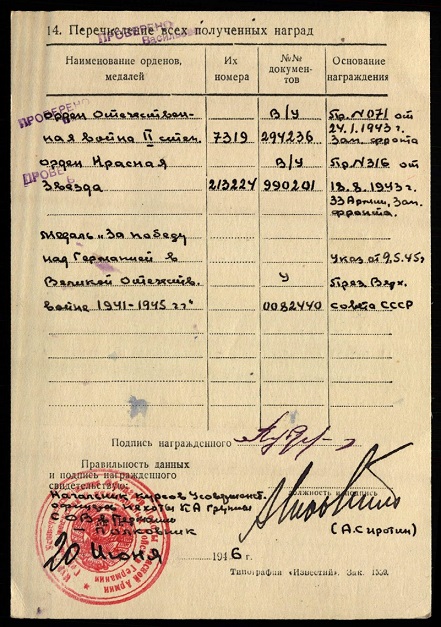 14. Перечисление всех полученных наград
ПРОВЕРЕНО
Наименование орденов, медалей
Их номера
№№ документов
Основание награждения
ПРОВЕРЕНО
Орден Отечествен- В/У Пр. N071 от
24.1.1943 г.
ная война II степ. 7319 294236 Зап. фронта
Орден Красная В/У Пр. N316 от
ПРОВЕ
Звезда 213224 990201 18.8.1943 г.
33 Армии, Зап.
фронта.
Медаль "За победу
над Германией в Указ от 9.5.45 г.
Великой Отечеств. У През. Верх.
войне 1941-1945 гг" 0082440 совета СССР
Подпись награжденного
Правильность данных
и подписи награжденного
свидетельствую:
должность и подпись
Начальник курсов Усовершенст.
офицеров пехоты КА Группы
СОВ в Германии
Полковник
(А. Сиротин)
20 Июня 1946 г.
Типография «Известий». Зак.